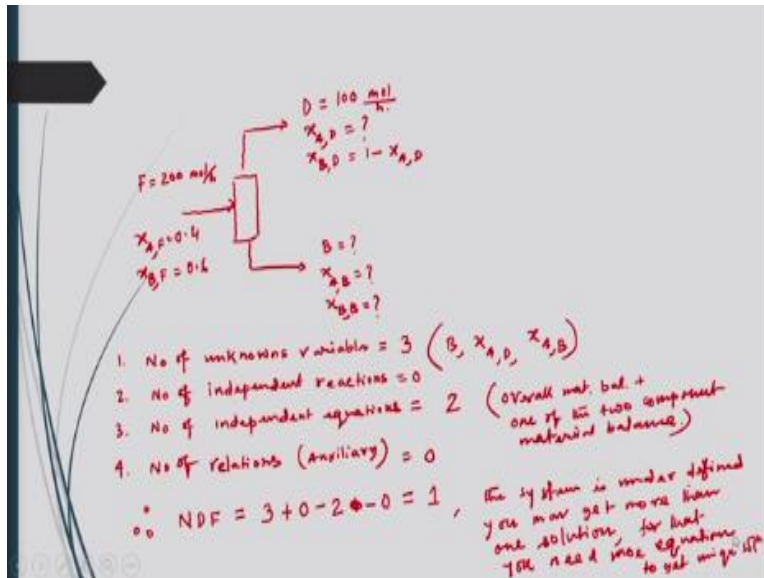 D = 100 mol/h.
x_A,D = ?
x_B,D = 1 - x_A,D
F = 200 mol/h
x_A,F = 0.4
x_B,F = 0.6
B = ?
x_A,B = ?
x_B,B = ?
1. No of unknowns variables = 3 (B, x_A,D, x_A,B)
2. No of independent reactions = 0
3. No of independent equations = 2 (overall mat. bal. +
one of the two component
material balance.)
4. No of relations (Auxiliary) = 0
∴ NDF = 3 + 0 - 2 - 0 = 1, the system is under defined
you may get more than
one solution, for that
you need more equation
to get